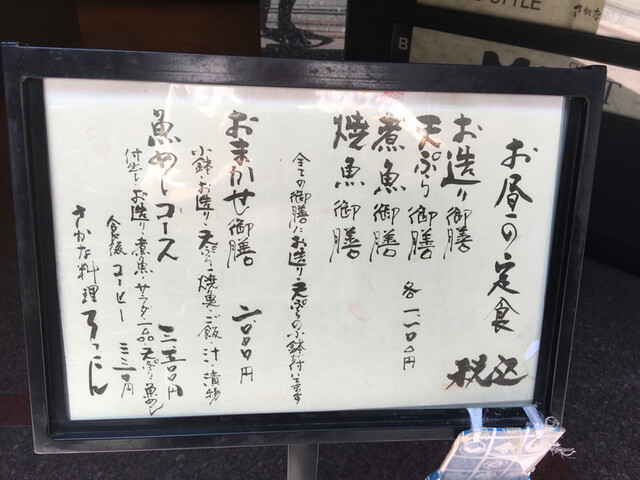 お昼の定食
税込
お造り御膳
天ぷら御膳
各一、一〇〇円
煮魚御膳
焼魚御膳
全ての御膳にお造り・天ぷらの小鉢付いてます
おまかせ御膳
小鉢・お造り・天ぷら・焼魚・ご飯・汁・漬物
魚めしコース
付出し・お造り・煮魚・サラダ・一品・天ぷら・魚めし
食後 コーヒー
さかな料理
STYLE
B